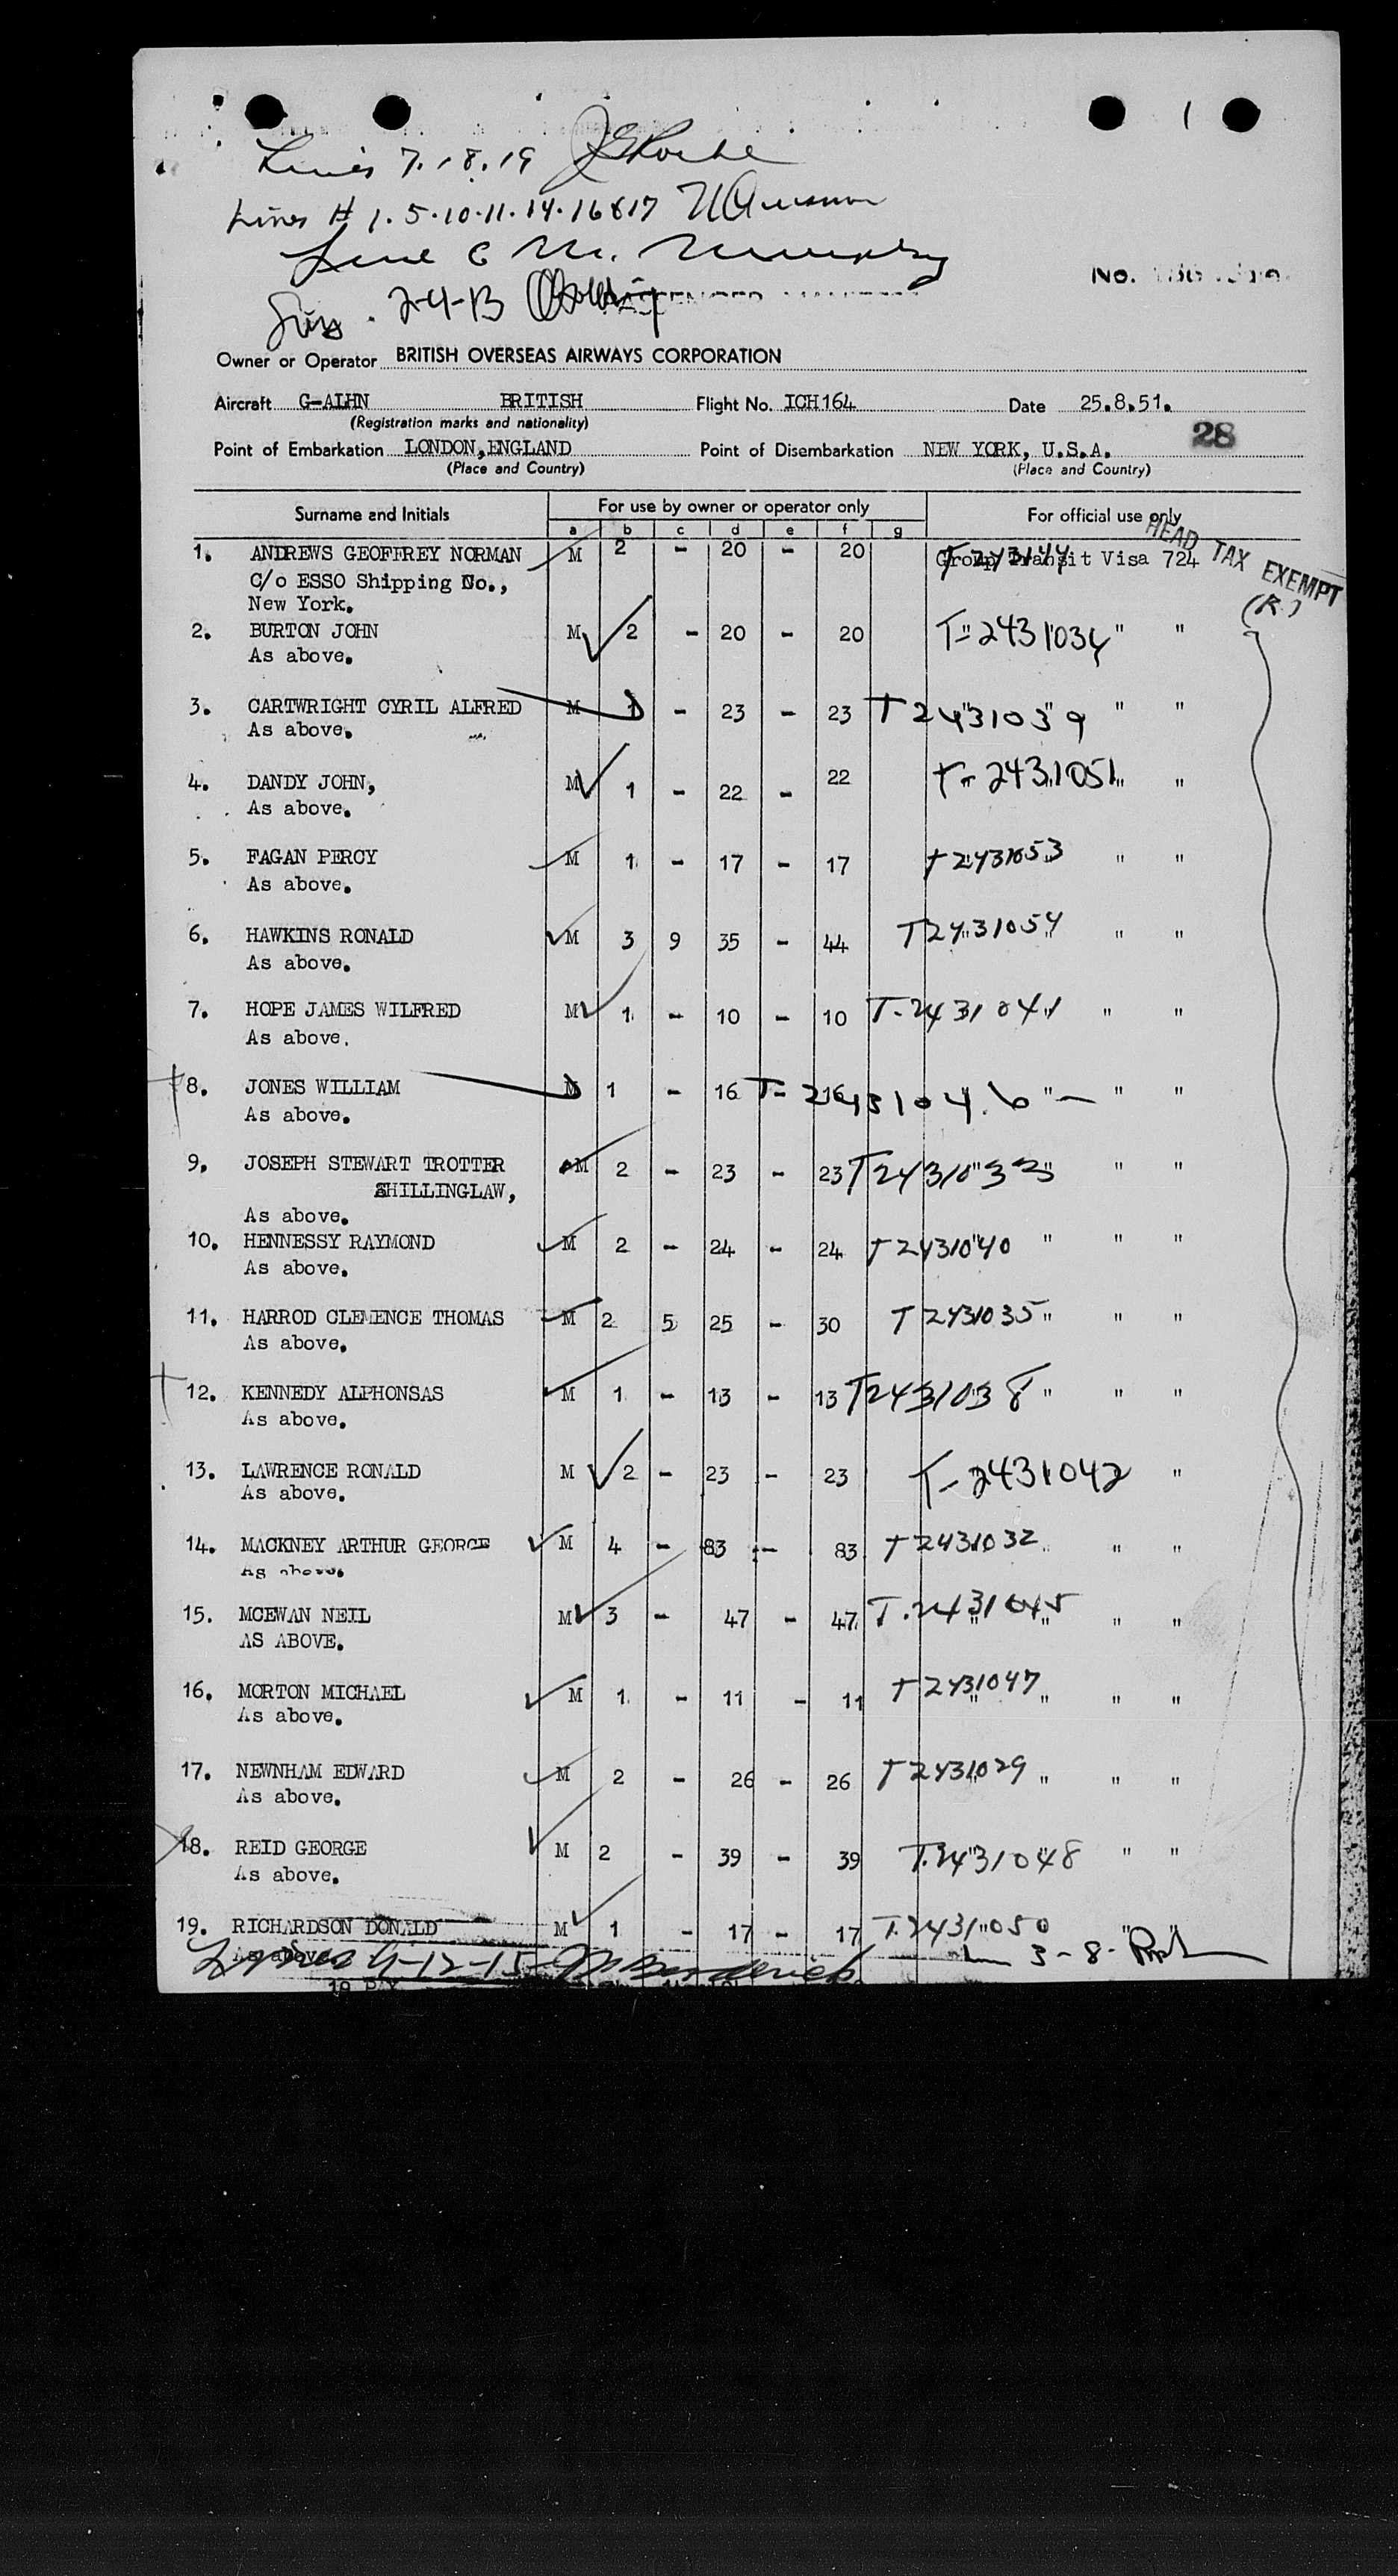 Lines 7.18.19
Lines # 1.5.10.11.14.16&17
Line 6 M. Murphy
2-4-13
No.
Owner or Operator BRITISH OVERSEAS AIRWAYS CORPORATION
Aircraft G-ALHN BRITISH Flight No. ICH164 Date 25.8.51.
(Registration marks and nationality)
28
Point of Embarkation LONDON,ENGLAND Point of Disembarkation NEW YORK, U.S.A.
(Place and Country) (Place and Country)
Surname and Initials For use by owner or operator only For official use only
a b c d e f g
HEAD TAX EXEMPT
(R.)
1. ANDREWS GEOFFREY NORMAN M 2 - 20 - 20 Group Transit Visa 724
C/o ESSO Shipping Co.,
New York.
2. BURTON JOHN M 2 - 20 - 20 T-2431034 " "
As above.
3. CARTWRIGHT CYRIL ALFRED M 1 - 23 - 23 T2431039 " "
As above.
4. DANDY JOHN, M 1 - 22 - 22 T-2431051 " "
As above.
5. FAGAN PERCY M 1 - 17 - 17 T2431053 " "
As above.
6. HAWKINS RONALD M 3 9 35 - 44 T2431054 " "
As above.
7. HOPE JAMES WILFRED M 1 - 10 - 10 T-2431041 " "
As above.
8. JONES WILLIAM M 1 - 16 - 16 T-2431046 " " "
As above.
9. JOSEPH STEWART TROTTER M 2 - 23 - 23 T2431033 " "
SHILLINGLAW,
As above.
10. HENNESSY RAYMOND M 2 - 24 - 24 T2431040 " " "
As above.
11. HARROD CLEMENCE THOMAS M 2 5 25 - 30 T2431035 " " "
As above.
12. KENNEDY ALPHONSAS M 1 - 13 - 13 T2431038 " " "
As above.
13. LAWRENCE RONALD M 2 - 23 - 23 T-2431042 "
As above.
14. MACKNEY ARTHUR GEORGE M 4 - 83 - 83 T2431032 " "
As above.
15. MCEWAN NEIL M 3 - 47 - 47 T.2431045 " " "
AS ABOVE.
16. MORTON MICHAEL M 1 - 11 - 11 T2431047 " " "
As above.
17. NEWNHAM EDWARD M 2 - 26 - 26 T2431029 " " "
As above.
18. REID GEORGE M 2 - 39 - 39 T.2431048 " "
As above.
19. RICHARDSON DONALD M 1 - 17 - 17 T.2431050 " "
As above
3-8-
19 PAX